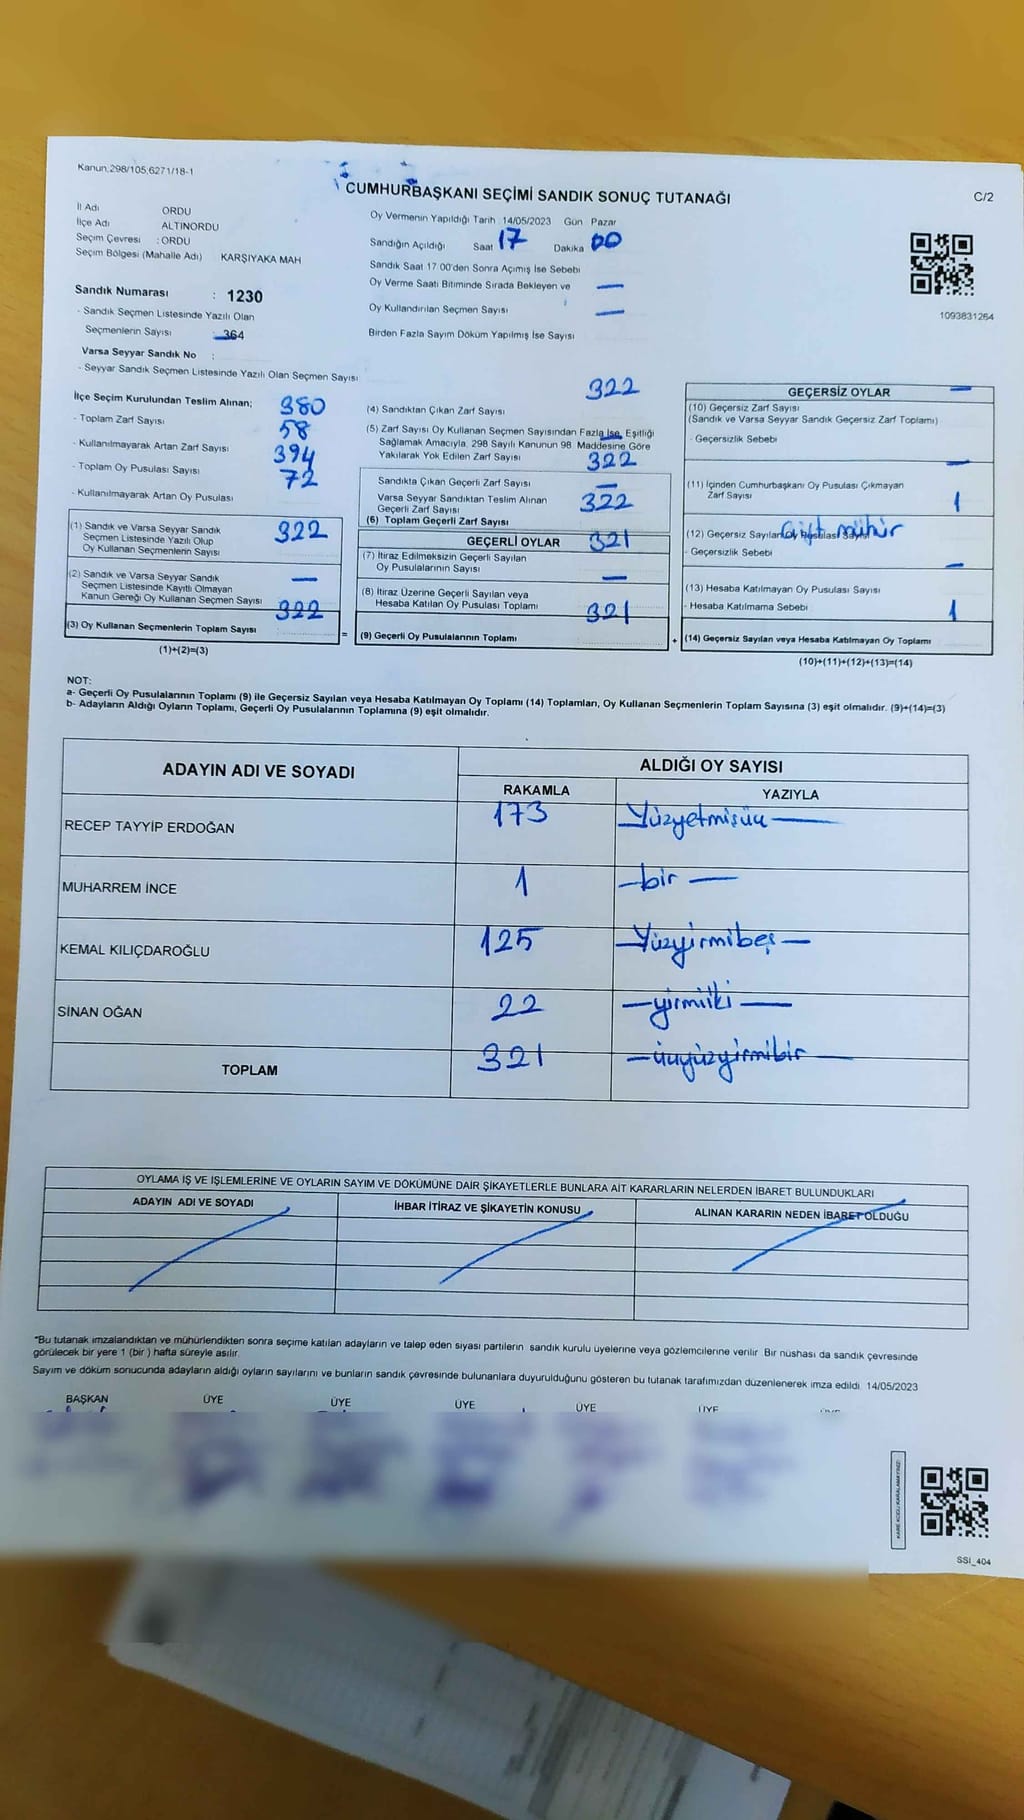 Kanun.298/105,6271/18-1
CUMHURBAŞKANI SEÇİMİ SANDIK SONUÇ TUTANAĞI
C/2
İl Adı ORDU
İlçe Adı ALTINORDU
Seçim Çevresi : ORDU
Seçim Bölgesi (Mahalle Adı) KARŞIYAKA MAH
Sandık Numarası : 1230
- Sandık Seçmen Listesinde Yazılı Olan
Seçmenlerin Sayısı : 364
Varsa Seyyar Sandık No :
- Seyyar Sandık Seçmen Listesinde Yazılı Olan Seçmen Sayısı
Oy Vermenin Yapıldığı Tarih 14/05/2023 Gün Pazar
Sandığın Açıldığı Saat 17 Dakika 00
Sandık Saat 17 00'den Sonra Açımış İse Sebebi
Oy Verme Saati Bitiminde Sırada Bekleyen ve —
Oy Kullandırılan Seçmen Sayısı —
Birden Fazla Sayım Döküm Yapılmış İse Sayısı
1093831264
İlçe Seçim Kurulundan Teslim Alınan; 380
- Toplam Zarf Sayısı 58
- Kullanılmayarak Artan Zarf Sayısı 394
- Toplam Oy Pusulası Sayısı 72
- Kullanılmayarak Artan Oy Pusulası
(1) Sandık ve Varsa Seyyar Sandık 322
Seçmen Listesinde Yazılı Olup
Oy Kullanan Seçmenlerin Sayısı
(2) Sandık ve Varsa Seyyar Sandık —
Seçmen Listesinde Kayıtlı Olmayan
Kanun Gereği Oy Kullanan Seçmen Sayısı 322
(3) Oy Kullanan Seçmenlerin Toplam Sayısı =
(1)+(2)=(3)
322
(4) Sandıktan Çıkan Zarf Sayısı
(5) Zarf Sayısı Oy Kullanan Seçmen Sayısından Fazla İse, Eşitliği —
Sağlamak Amacıyla, 298 Sayılı Kanunun 98. Maddesine Göre
Yakılarak Yok Edilen Zarf Sayısı 322
Sandıkta Çıkan Geçerli Zarf Sayısı —
Varsa Seyyar Sandıktan Teslim Alınan
Geçerli Zarf Sayısı 322
(6) Toplam Geçerli Zarf Sayısı
GEÇERLİ OYLAR 321
(7) İtiraz Edilmeksizin Geçerli Sayılan
Oy Pusulalarının Sayısı —
(8) İtiraz Üzerine Geçerli Sayılan veya
Hesaba Katılan Oy Pusulası Toplamı 321
(9) Geçerli Oy Pusulalarının Toplamı +
GEÇERSİZ OYLAR —
(10) Geçersiz Zarf Sayısı
(Sandık ve Varsa Seyyar Sandık Geçersiz Zarf Toplamı)
- Geçersizlik Sebebi
—
(11) İçinden Cumhurbaşkanı Oy Pusulası Çıkmayan
Zarf Sayısı 1
(12) Geçersiz Sayılan Oy Pusulası Sayısı
Çift mühür
- Geçersizlik Sebebi
—
(13) Hesaba Katılmayan Oy Pusulası Sayısı
- Hesaba Katılmama Sebebi 1
(14) Geçersiz Sayılan veya Hesaba Katılmayan Oy Toplamı
(10)+(11)+(12)+(13)=(14)
NOT:
a- Geçerli Oy Pusulalarının Toplamı (9) ile Geçersiz Sayılan veya Hesaba Katılmayan Oy Toplamı (14) Toplamları, Oy Kullanan Seçmenlerin Toplam Sayısına (3) eşit olmalıdır. (9)+(14)=(3)
b- Adayların Aldığı Oyların Toplamı, Geçerli Oy Pusulalarının Toplamına (9) eşit olmalıdır.
ADAYIN ADI VE SOYADI ALDIĞI OY SAYISI
RAKAMLA YAZIYLA
RECEP TAYYİP ERDOĞAN 173 Yüzyetmişüç —
MUHARREM İNCE 1 — bir —
KEMAL KILIÇDAROĞLU 125 — Yüzyirmibeş —
SİNAN OĞAN 22 — yirmiiki —
TOPLAM 321 — üçyüzyirmibir —
OYLAMA İŞ VE İŞLEMLERİNE VE OYLARIN SAYIM VE DÖKÜMÜNE DAİR ŞİKAYETLERLE BUNLARA AİT KARARLARIN NELERDEN İBARET BULUNDUKLARI
ADAYIN ADI VE SOYADI İHBAR İTİRAZ VE ŞİKAYETİN KONUSU ALINAN KARARIN NEDEN İBARET OLDUĞU
*Bu tutanak imzalandıktan ve mühürlendikten sonra seçime katılan adayların ve talep eden siyasi partilerin sandık kurulu üyelerine veya gözlemcilerine verilir. Bir nüshası da sandık çevresinde
görülecek bir yere 1 (bir ) hafta süreyle asılır.
Sayım ve döküm sonucunda adayların aldığı oyların sayılarını ve bunların sandık çevresinde bulunanlara duyurulduğunu gösteren bu tutanak tarafımızdan düzenlenerek imza edildi. 14/05/2023
BAŞKAN ÜYE ÜYE ÜYE ÜYE ÜYE
KARE KODU KARALAMAYINIZ!
SSI_404